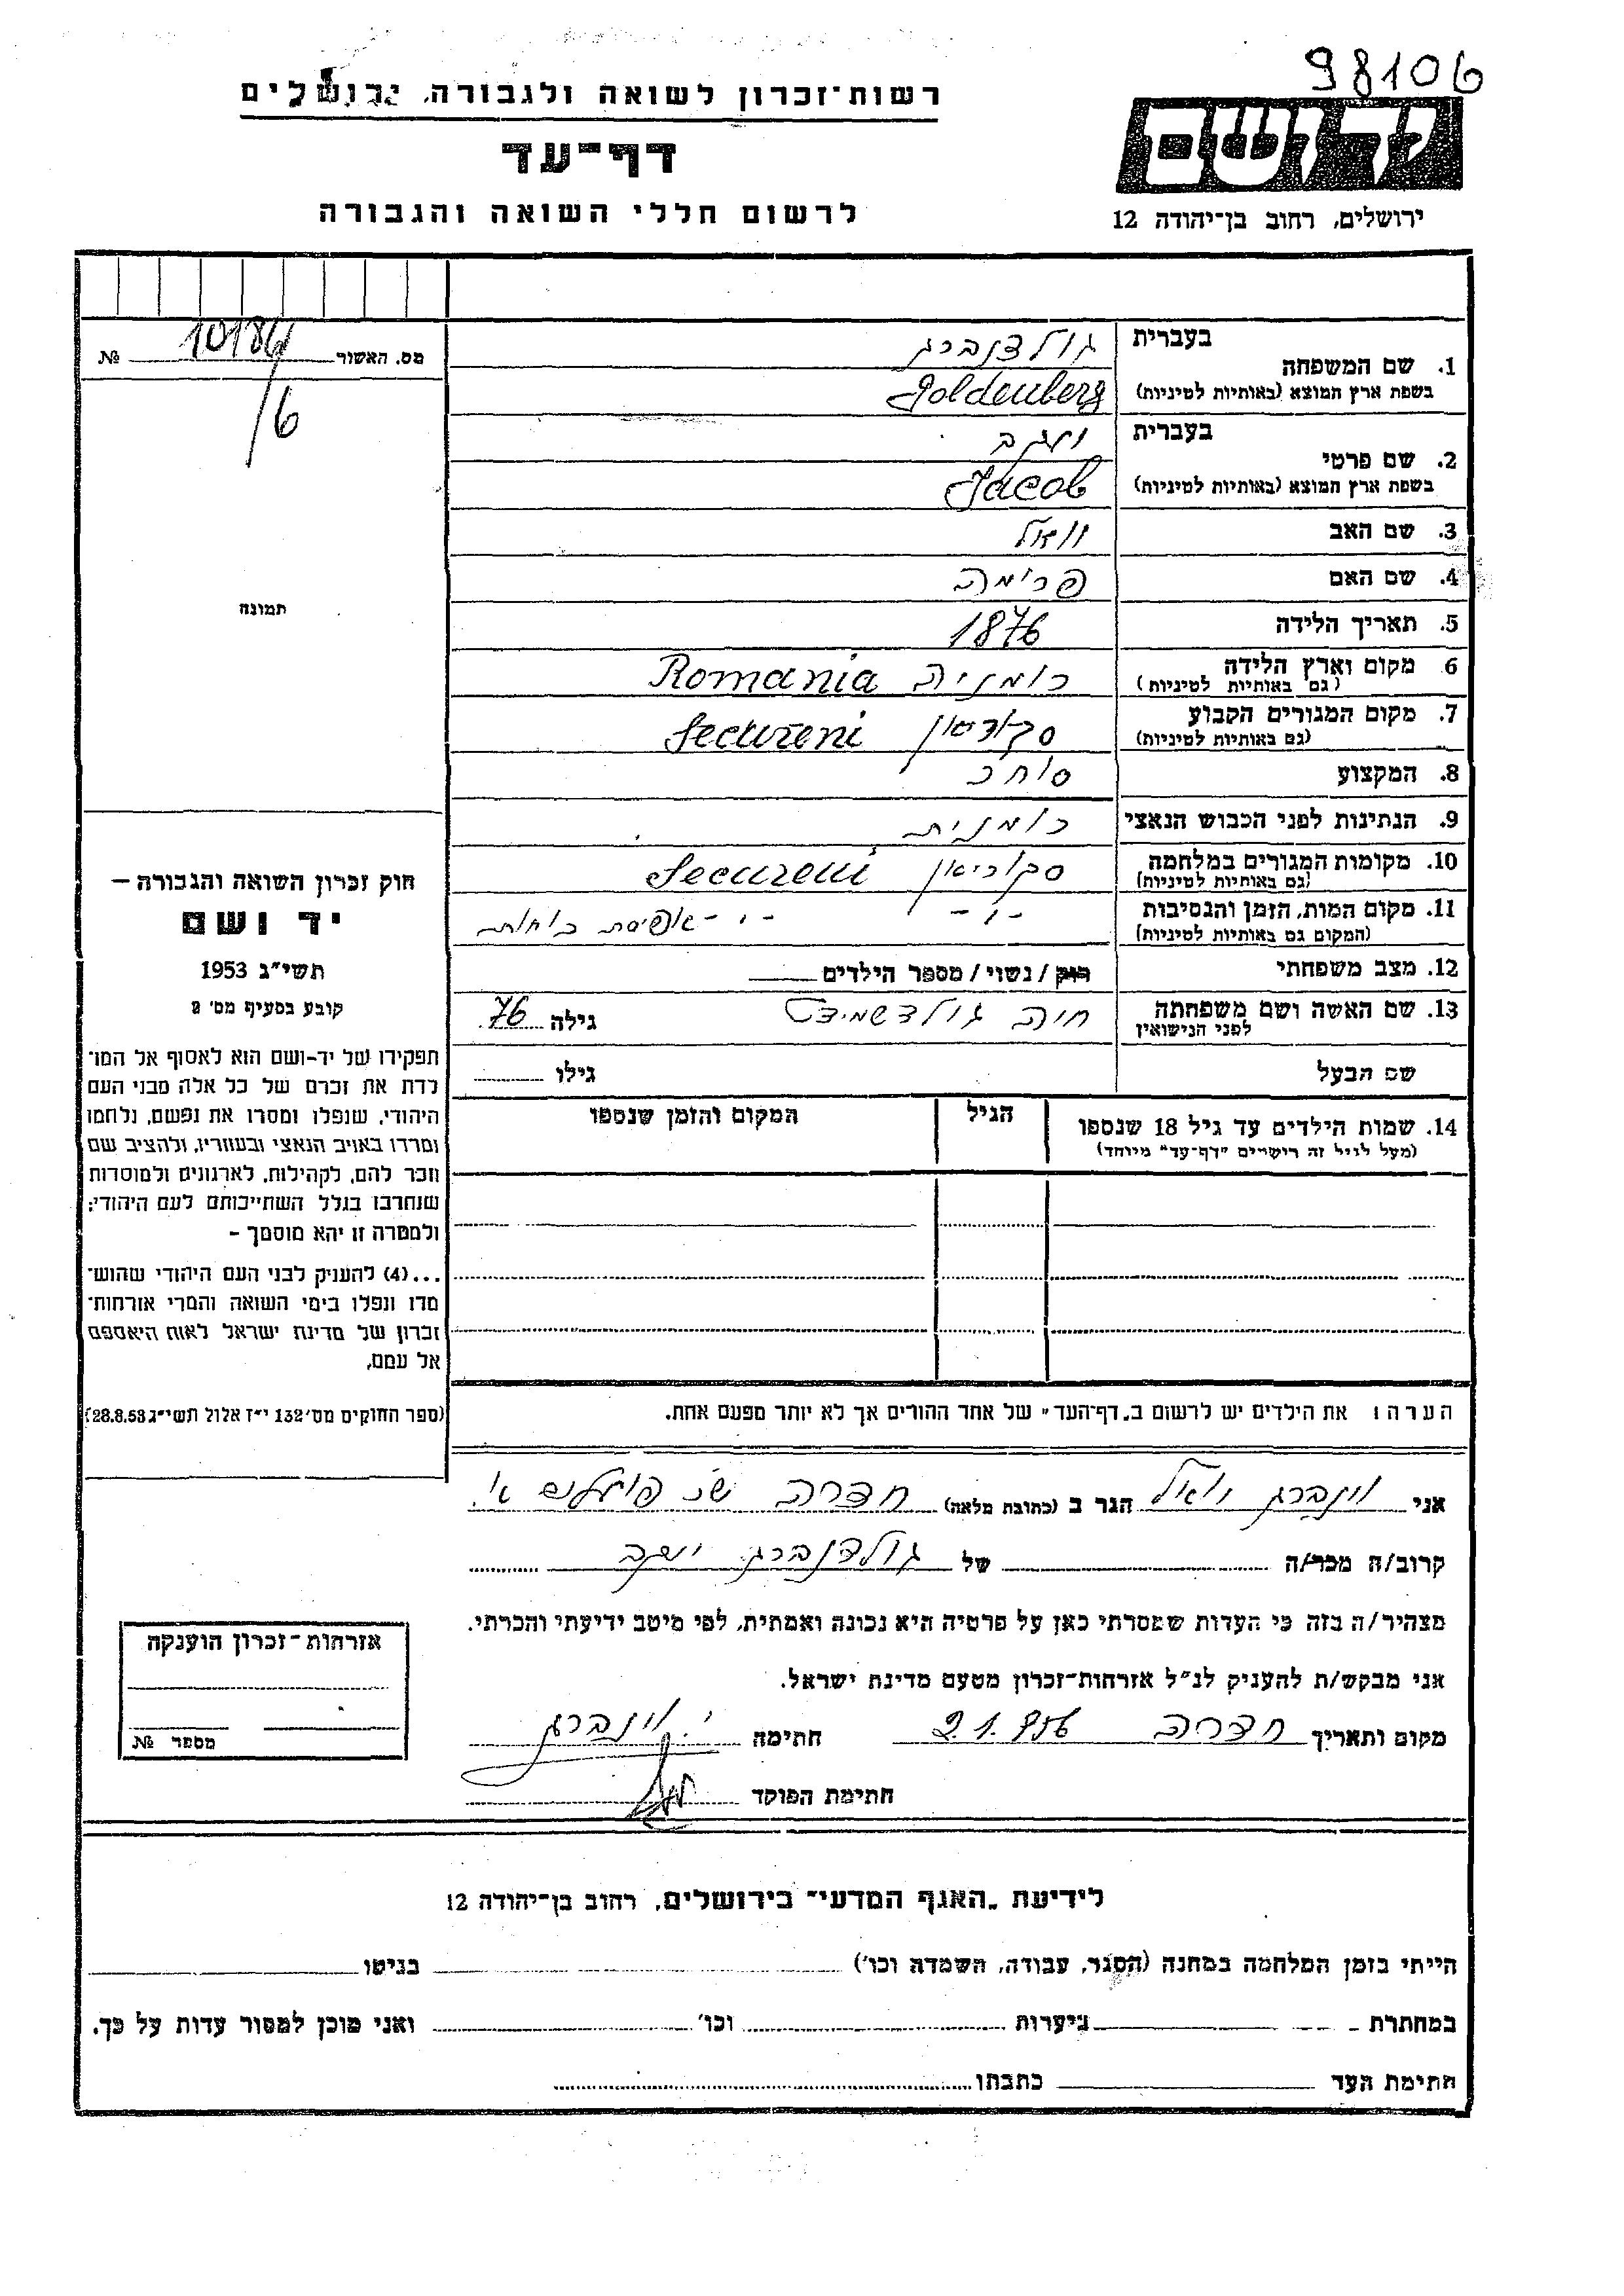 98106
רשות־זכרון לשואה ולגבורה, ירושלים
דף־עד
לרשום חללי השואה והגבורה
יד ושם
ירושלים, רחוב בן־יהודה 12
מס. האשור 10186/6 №
בעברית גולדנברג
1. שם המשפחה
בשפת ארץ המוצא (באותיות לטיניות) Goldenberg
בעברית יעקב
2. שם פרטי
בשפת ארץ המוצא (באותיות לטיניות) Jacob
3. שם האב יואל
4. שם האם פרימה
5. תאריך הלידה 1876
6. מקום וארץ הלידה רומניה Romania
(גם באותיות לטיניות)
7. מקום המגורים הקבוע Secureni
(גם באותיות לטיניות)
8. המקצוע סוחר
9. הנתינות לפני הכבוש הנאצי רומנית
10. מקומות המגורים במלחמה Secureni
(גם באותיות לטיניות)
11. מקום המות, הזמן והנסיבות -״- -״-
(המקום גם באותיות לטיניות)
12. מצב משפחתי רווק / נשוי / מספר הילדים
13. שם האשה ושם משפחתה חיה גולדשמידט גילה 76
לפני הנישואין
שם הבעל גילו
14. שמות הילדים עד גיל 18 שנספו הגיל המקום והזמן שנספו
(מעל לגיל זה רישרים "דף־עד" מיוחד)
תמונה
חוק זכרון השואה והגבורה –
יד ושם
תשי״ג 1953
קובע בסעיף מס׳ 2
תפקידו של יד-ושם הוא לאסוף אל המו־
לדת את זכרם של כל אלה מבני העם
היהודי, שנפלו ומסרו את נפשם, נלחמו
ומרדו באויב הנאצי ובעוזריו, ולהציב שם
וזכר להם, לקהילות, לארגונים ולמוסדות
שנחרבו בגלל השתייכותם לעם היהודי;
ולמטרה זו יהא מוסמך –
...(4) להעניק לבני העם היהודי שהוש־
מדו ונפלו בימי השואה והמרי אזרחות־
זכרון של מדינת ישראל לאות היאספם
אל עמם.
(ספר החוקים מס׳ 132 י״ז אלול תשי״ג 28.8.53)
הערה: את הילדים יש לרשום ב„דף־העד״ של אחד ההורים אך לא יותר מפעם אחת.
אני וינברג יואל הגר ב (כתובת מלאה) חדרה
קרוב/ה מכר/ה של גולדנברג יעקב
מצהיר/ה בזה כי העדות שמסרתי כאן על פרטיה היא נכונה ואמתית, לפי מיטב ידיעתי והכרתי.
אני מבקש/ת להעניק לנ״ל אזרחות־זכרון מטעם מדינת ישראל.
מקום ותאריך חדרה 2.1.956 חתימה י. וינברג
חתימת הפוקד
אזרחות־זכרון הוענקה
מספר №
לידיעת „האגף המדעי״ בירושלים, רחוב בן־יהודה 12
הייתי בזמן המלחמה במחנה (הסגר, עבודה, השמדה וכו׳) בגיטו
במחתרת ביערות וכו׳ ואני מוכן למסור עדות על כך.
חתימת העד כתבתו